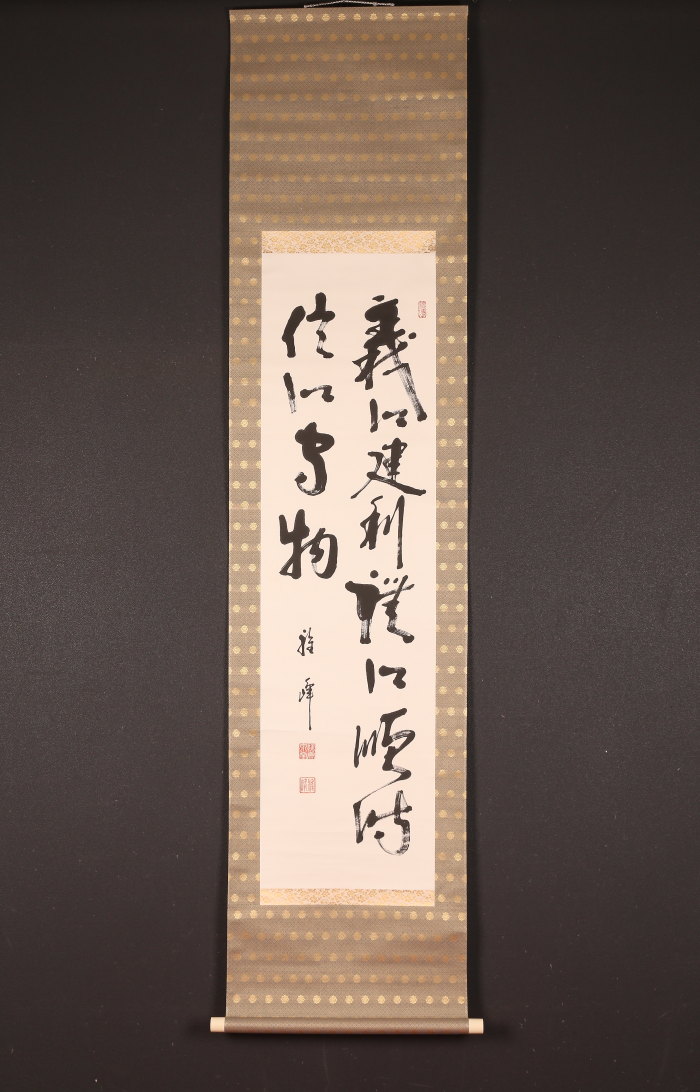 義以建利禮以順時
信以守物